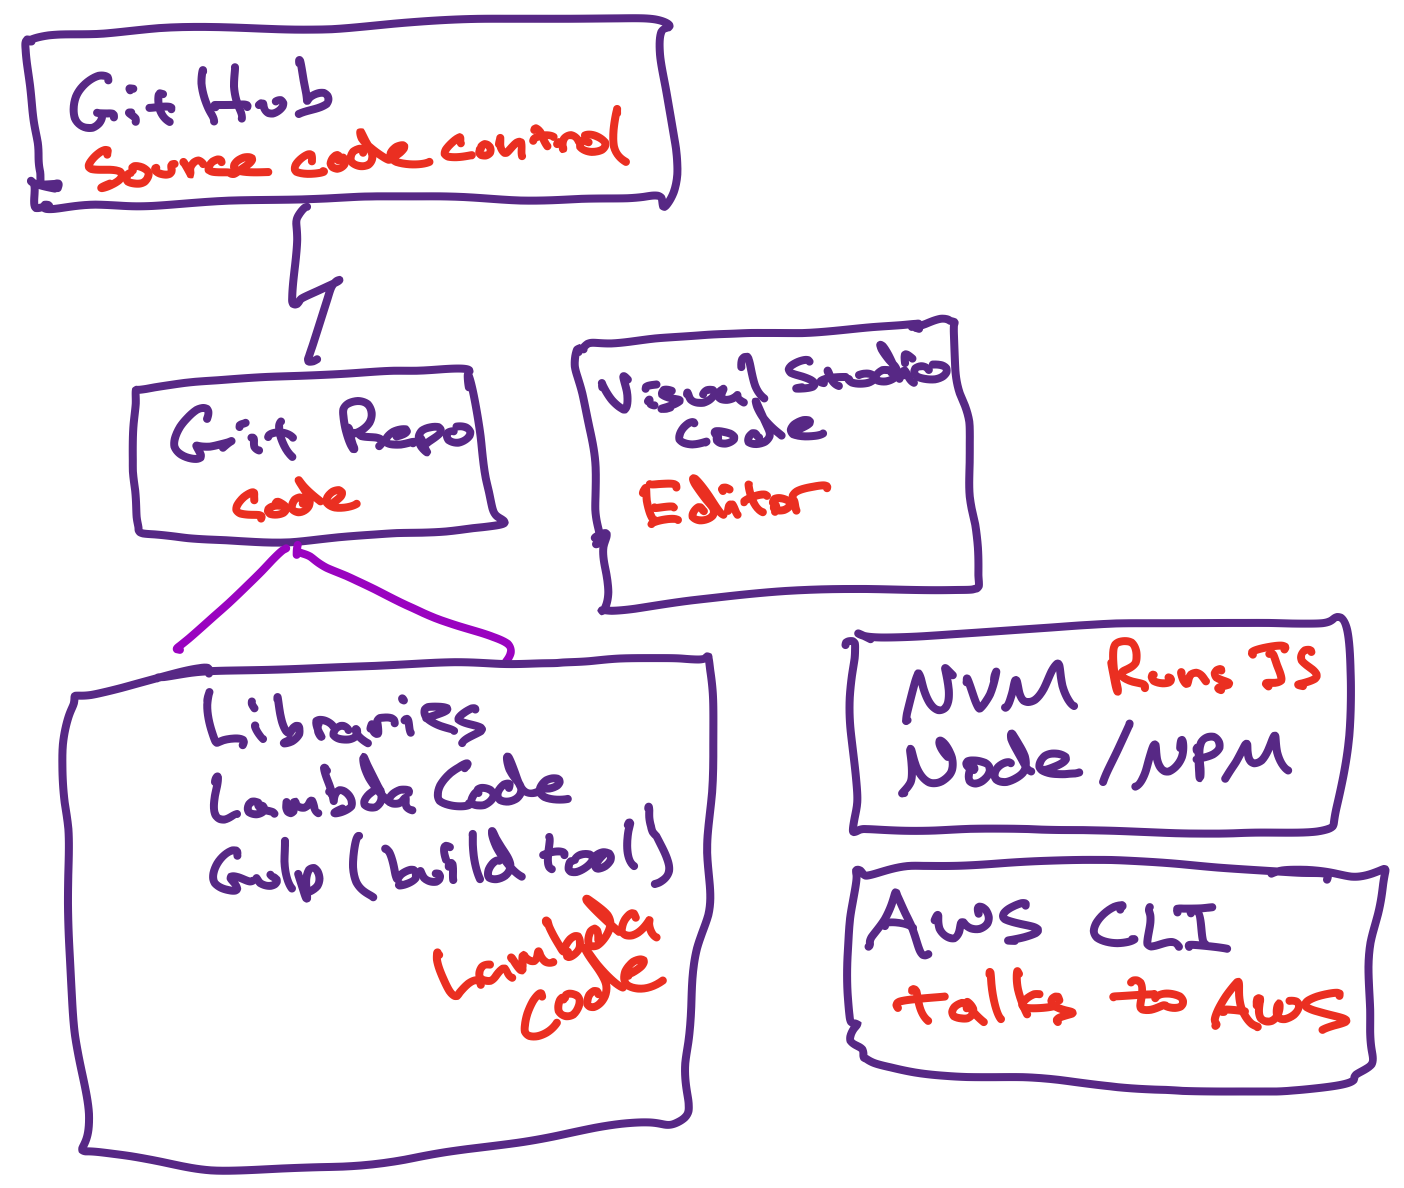 GitHub
Source code control
Git Repo
code
Visual Studio
Code
Editor
Libraries
Lambda Code
Gulp (build tool)
Lambda
Code
NVM Runs JS
Node/NPM
AWS CLI
talks to AWS